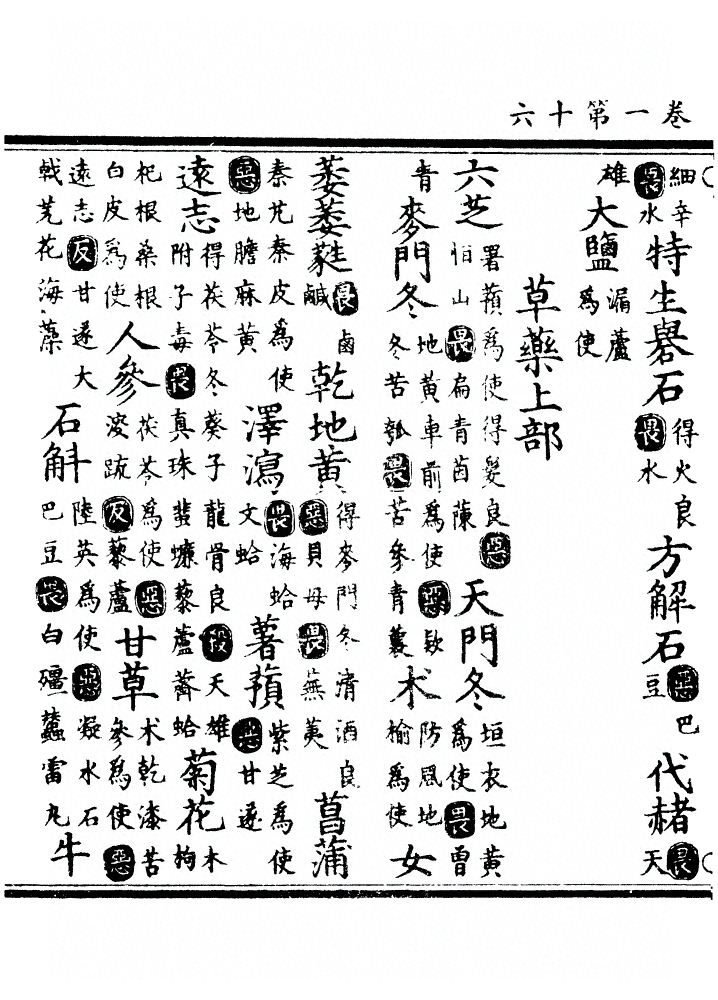 卷一第十六
細辛畏水特生礜石得火良畏水方解石惡巴豆代赭畏天
雄大鹽漏蘆爲使
草藥上部
六芝署蕷爲使得髮良惡恒山畏扁青茵蔯天門冬垣衣地黃爲使畏曾
青麥門冬地黃車前爲使惡款冬苦瓠畏苦參青蘘朮防風地榆爲使女
萎萎蕤畏鹵鹹乾地黃得麥門冬清酒良惡貝母畏蕪荑菖蒲
秦艽秦皮爲使惡地膽麻黃澤瀉畏海蛤文蛤薯蕷紫芝爲使惡甘遂
遠志得茯苓冬葵子龍骨良殺天雄附子毒畏真珠蜚蠊藜蘆薺蛤菊花朮枸
杞根桑根白皮爲使人參茯苓爲使惡溲疏反藜蘆甘草朮乾漆苦參爲使惡
遠志反甘遂大戟芫花海藻石斛陸英爲使惡凝水石巴豆畏白殭蠶雷丸牛